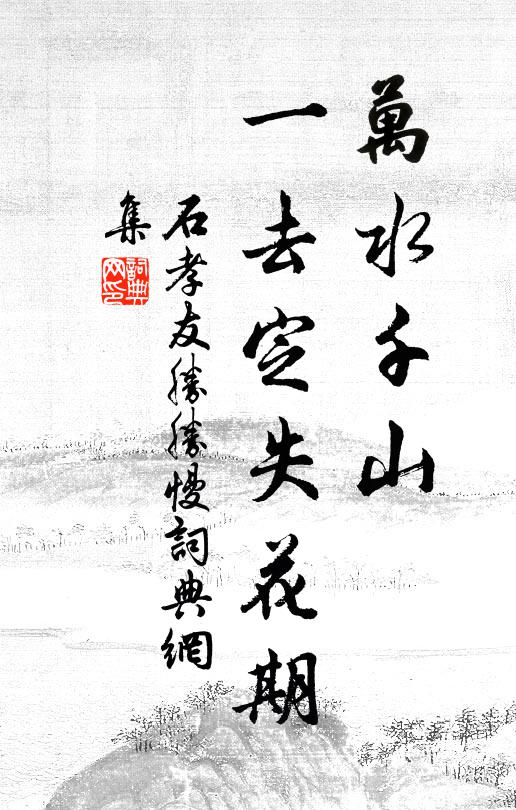 萬水千山
一去空失花期
石孝友勝勝慢詞典網
集
詞典
网印